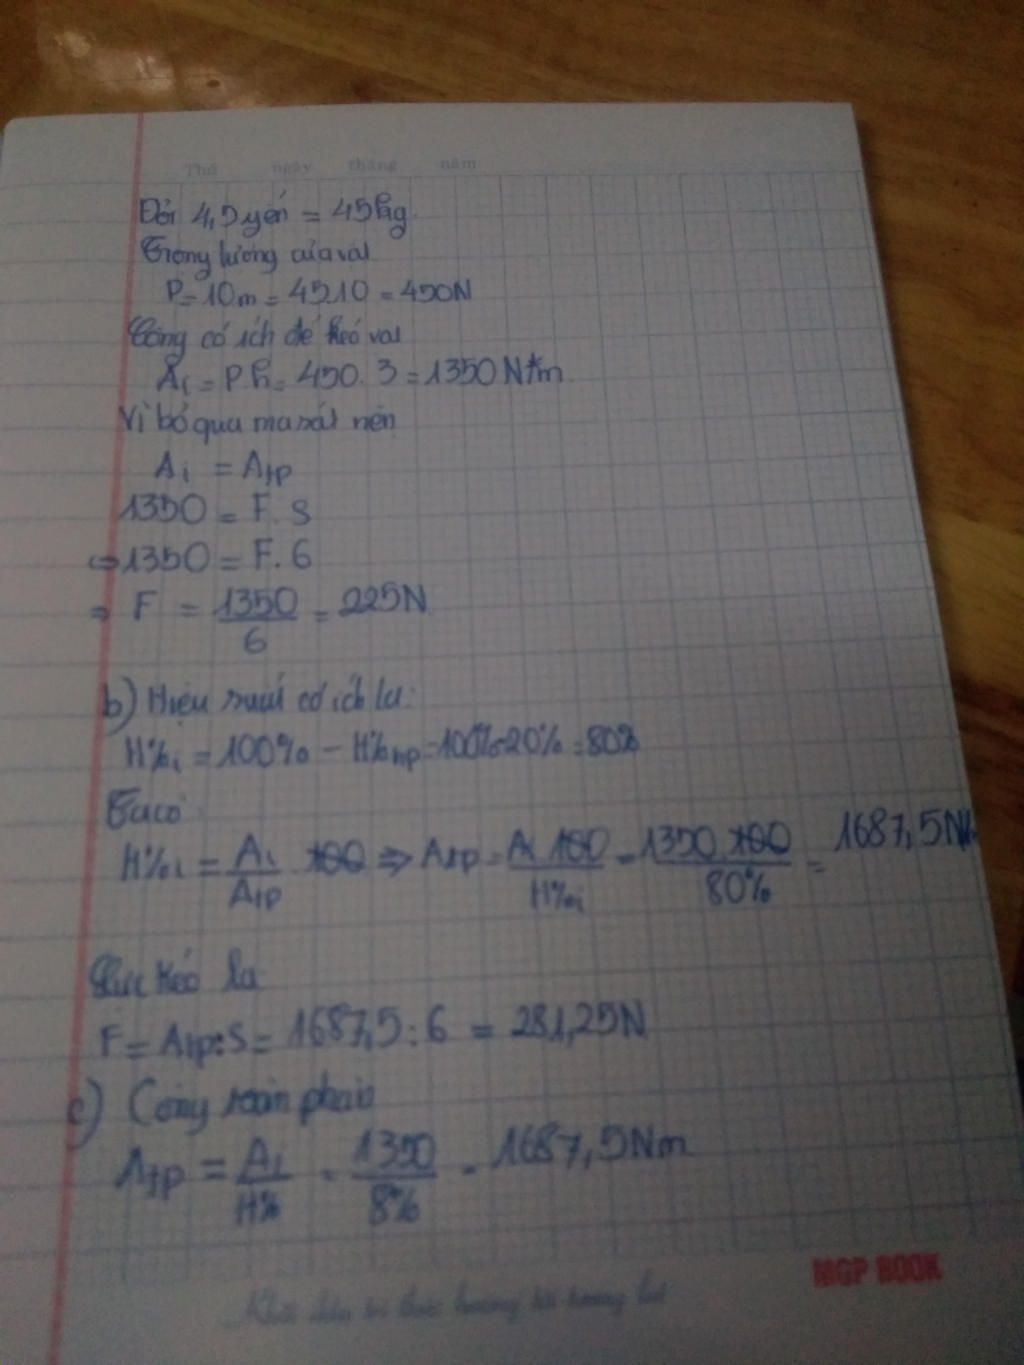 Thứ ngày tháng năm
Đổi 4,5 yến = 45kg
Trọng lượng của vật
P = 10m = 45.10 = 450N
Công có ích để kéo vật
Ai = P.h = 450.3 = 1350 N*m
Vì bỏ qua ma sát nên
Ai = Atp
1350 = F.S
⇔ 1350 = F.6
⇒ F = 1350/6 = 225N
b) Hiệu suất có ích là:
H%i = 100% - H%hp = 100% - 20% = 80%
Ta có
H%i = Ai/Atp . 100 ⇒ Atp = Ai.100/H%i = 1350.100/80% = 1687,5Nm
Lực kéo là
F = Atp:S = 1687,5:6 = 281,25N
c) Công toàn phần
Atp = Ai/H% = 1350/8% = 1687,5Nm
MGP BOOK